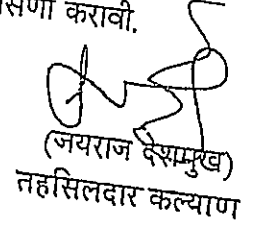 करावी.
(जयराज देशमुख)
तहसिलदार कल्याण